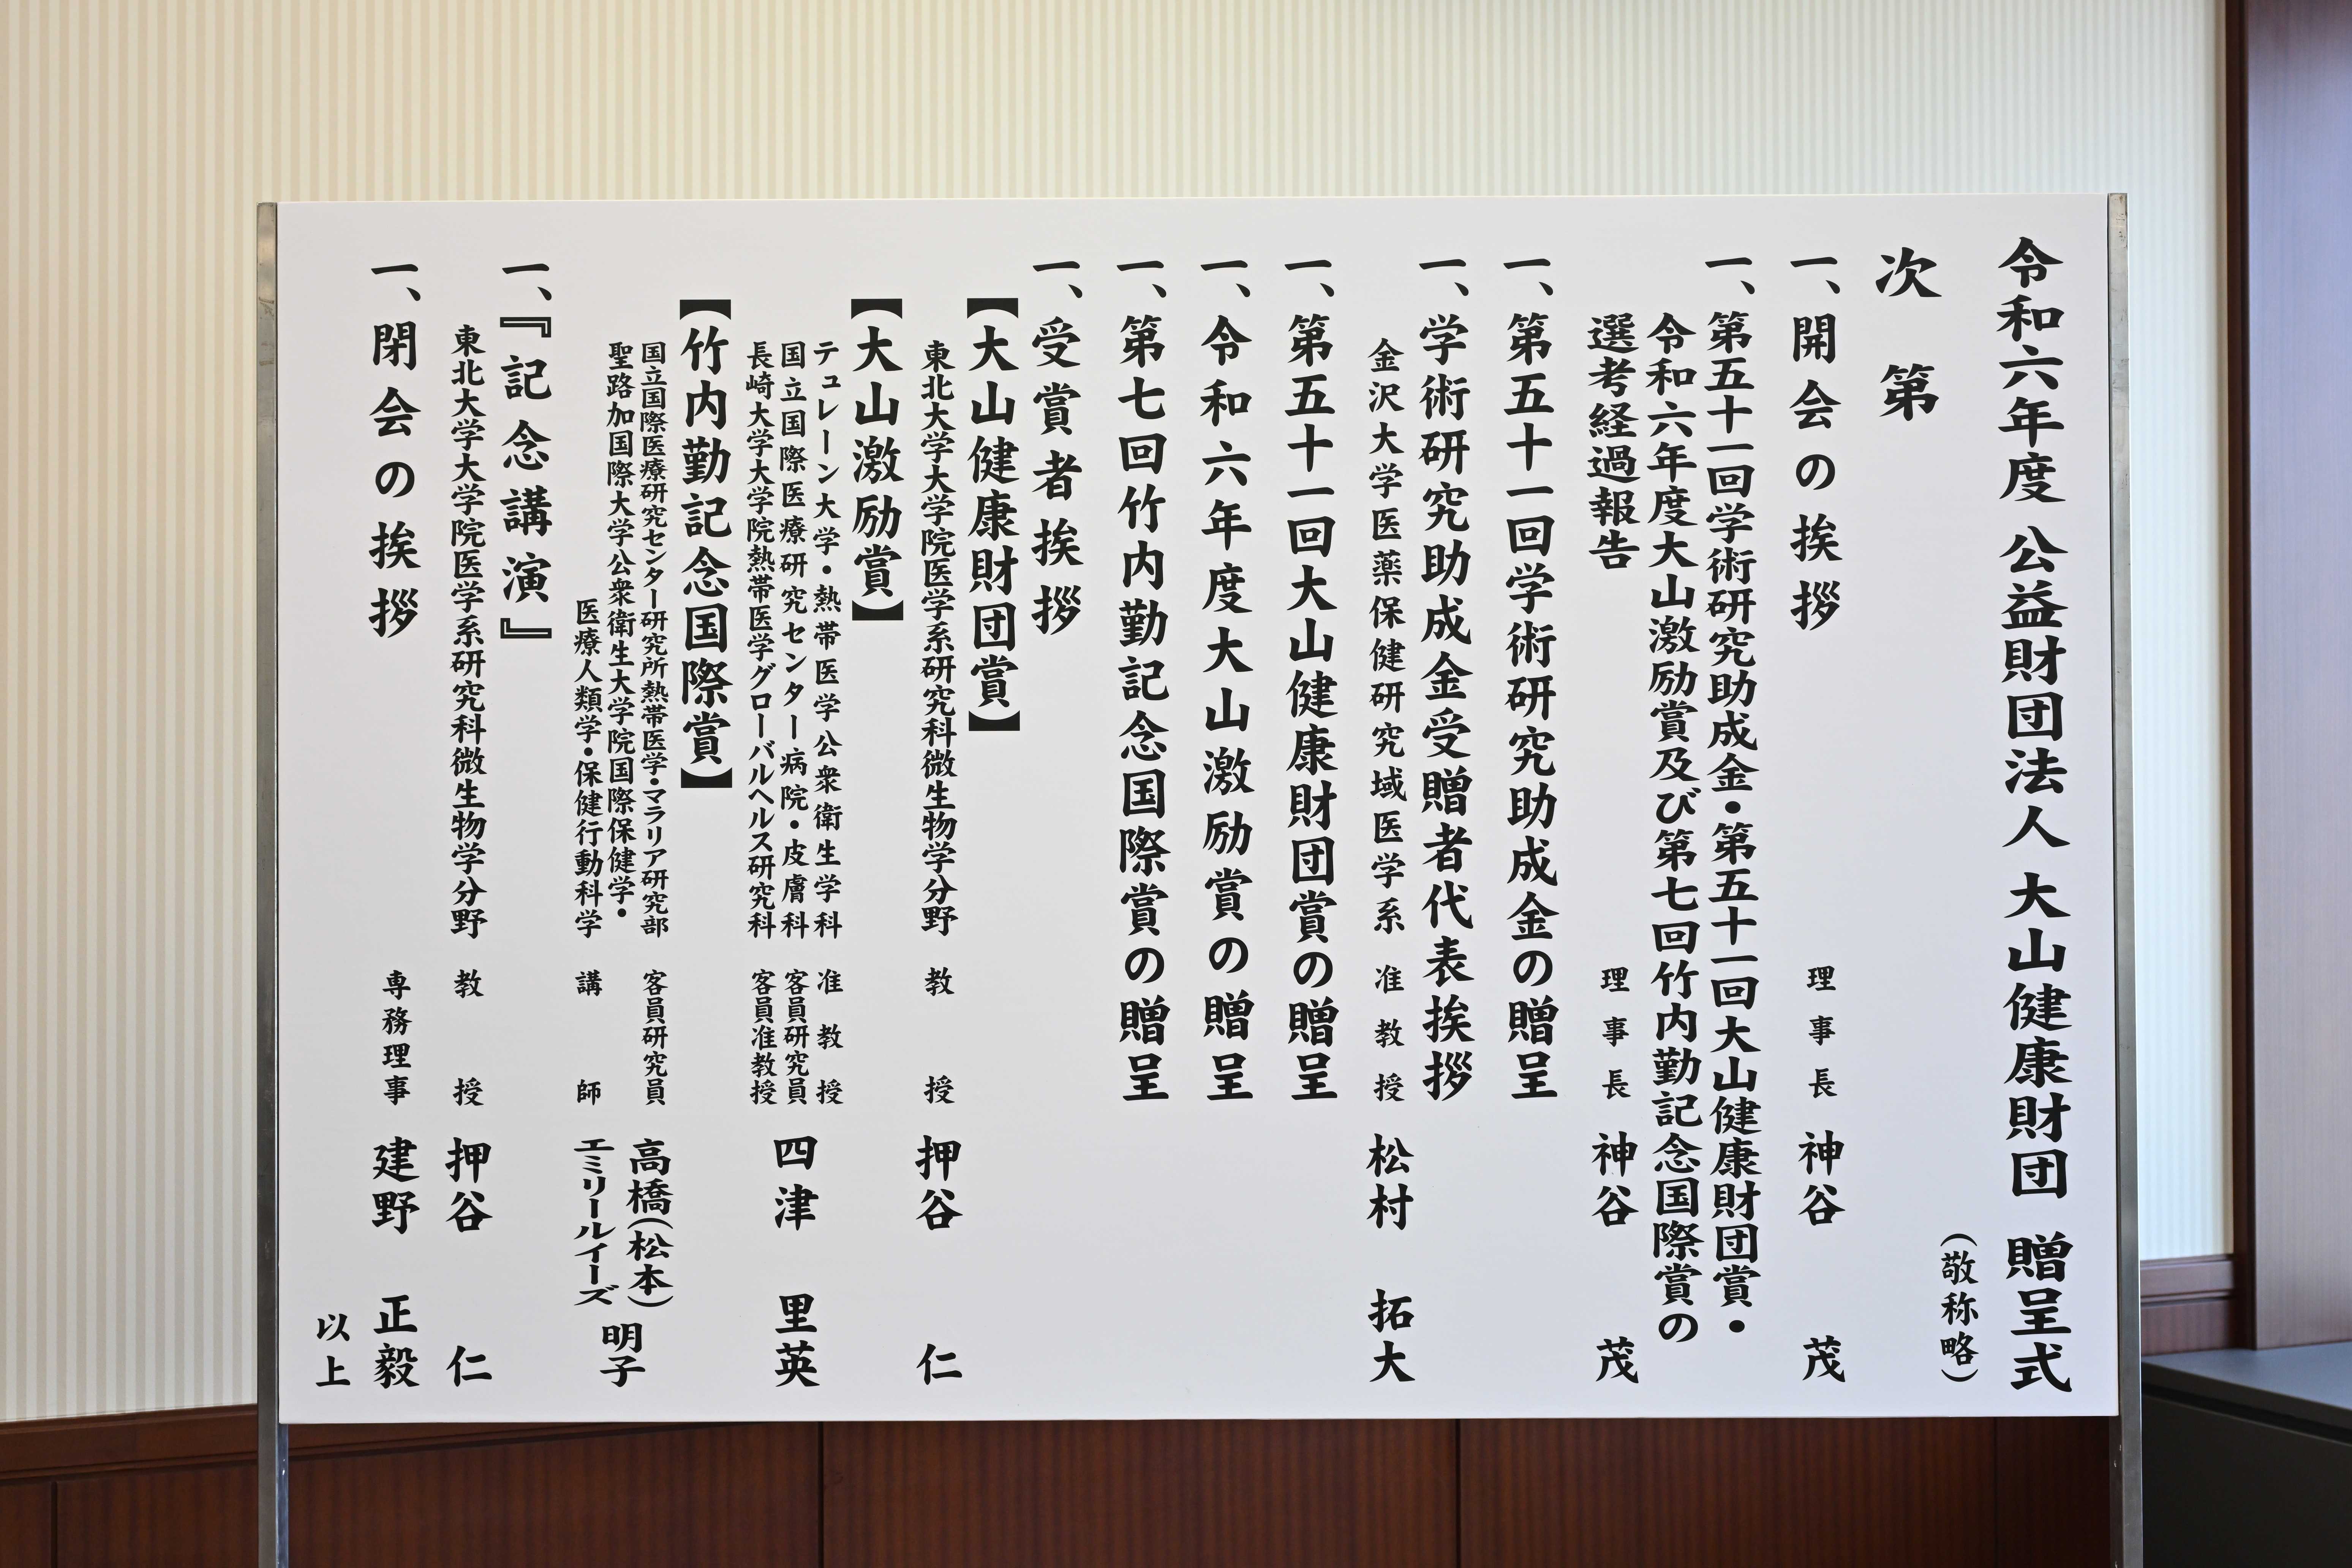 令和六年度 公益財団法人 大山健康財団 贈呈式
（敬称略）
次第
一、開会の挨拶 理事長 神谷 茂
一、第五十一回学術研究助成金・第五十一回大山健康財団賞・
令和六年度大山激励賞及び第七回竹内勤記念国際賞の
選考経過報告 理事長 神谷 茂
一、第五十一回学術研究助成金の贈呈
一、学術研究助成金受贈者代表挨拶
金沢大学医薬保健研究域医学系 准教授 松村 拓大
一、第五十一回大山健康財団賞の贈呈
一、令和六年度大山激励賞の贈呈
一、第七回竹内勤記念国際賞の贈呈
一、受賞者挨拶
【大山健康財団賞】
東北大学大学院医学系研究科微生物学分野 教授 押谷 仁
【大山激励賞】
テュレーン大学・熱帯医学公衆衛生学科 准教授
国立国際医療研究センター病院・皮膚科 客員研究員 四津 里英
長崎大学大学院熱帯医学グローバルヘルス研究科 客員准教授
【竹内勤記念国際賞】
国立国際医療研究センター研究所熱帯医学・マラリア研究部 客員研究員 高橋（松本）
聖路加国際大学公衆衛生大学院国際保健学・
医療人類学・保健行動科学 講師 エミリールイーズ 明子
一、『記念講演』
東北大学大学院医学系研究科微生物学分野 教授 押谷 仁
一、閉会の挨拶 専務理事 建野 正毅
以上